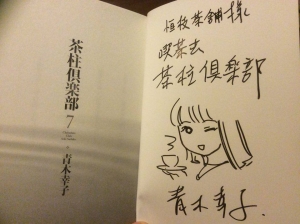 茶柱倶楽部
7
青木幸子
恒枝茶舗様
喫茶去
茶柱倶楽部
青木幸子